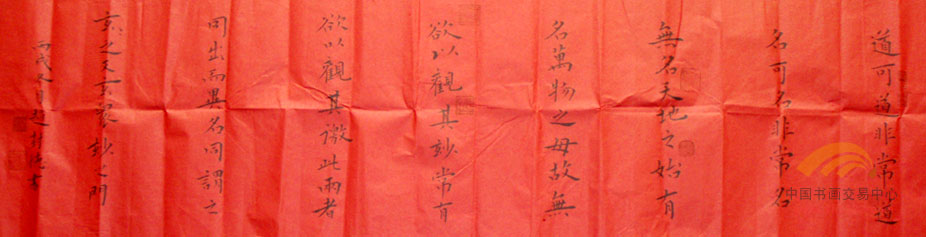 道可道非常道
名可名非常名
無名天地之始有
名萬物之母故無
欲以觀其妙常有
欲以觀其徼此兩者
同出而異名同謂之
玄之又玄眾妙之門
中国书画交易中心